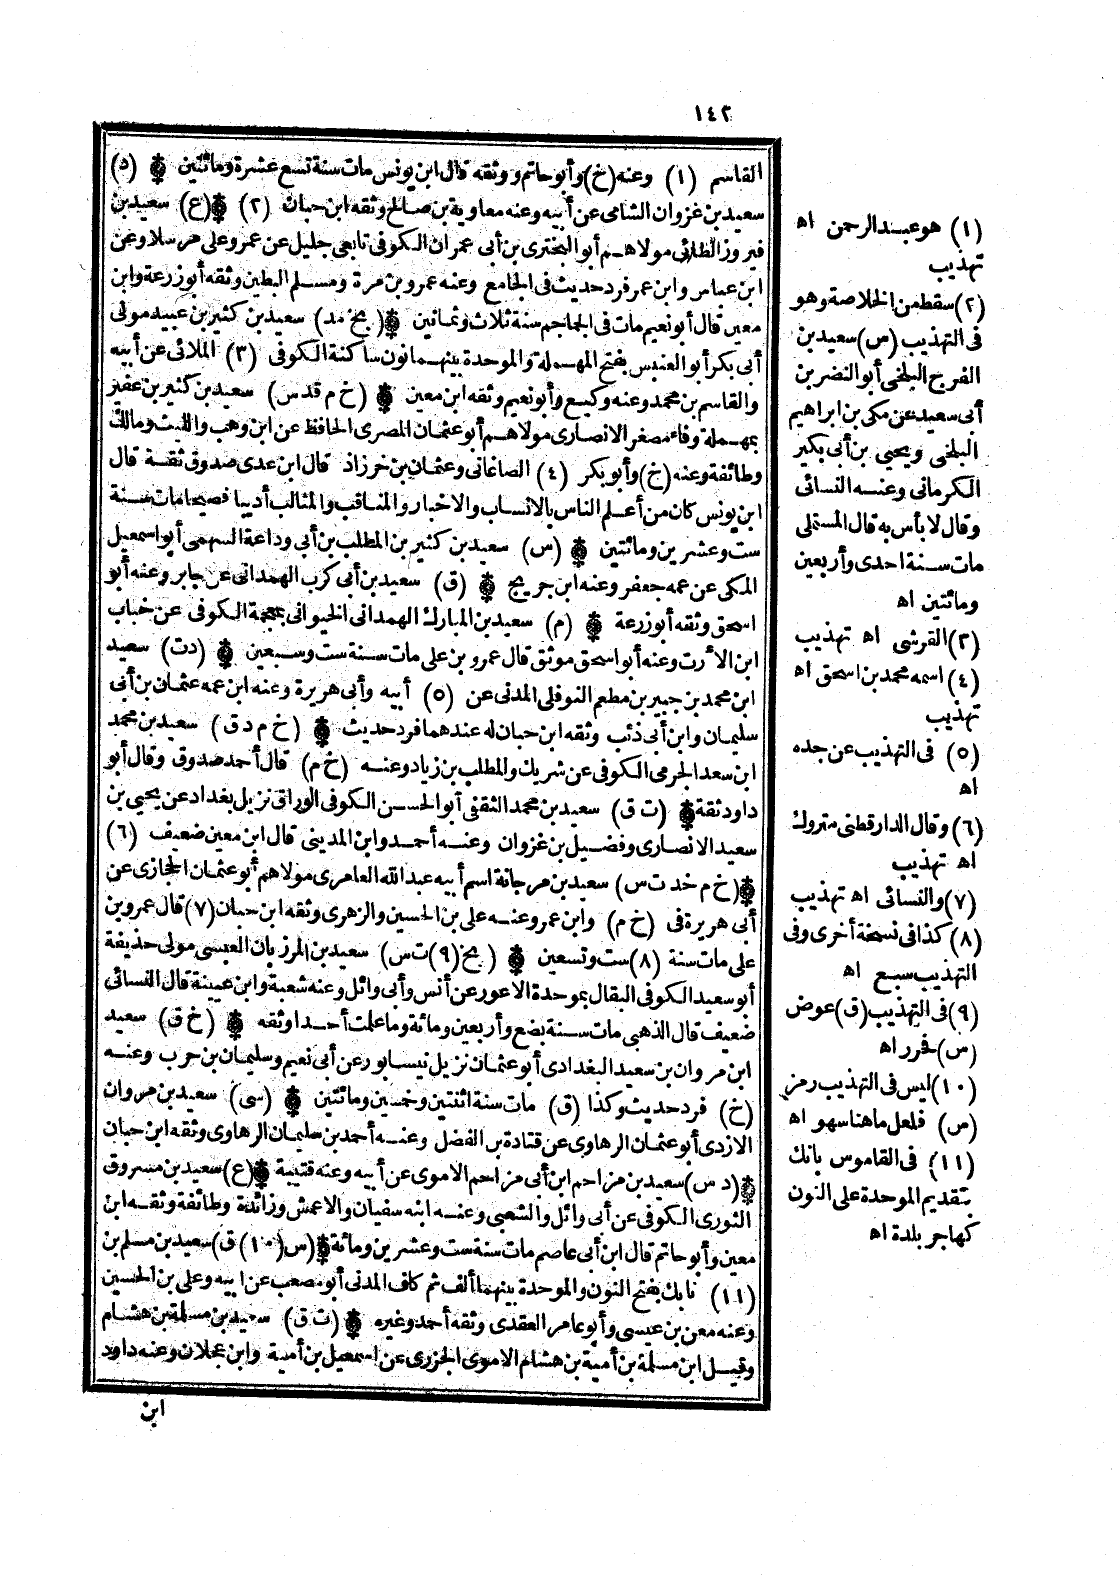 ١٤٢
القاسم (١) وعنه (خ) وأبو حاتم ووثقه قال ابن يونس مات سنة تسع عشرة ومائتين (د)
سعيد بن غزوان الشامى عن أبيه وعنه معاوية بن صالح وثقه ابن حبان (٢) (ع) سعيد بن
فيروز الطائى مولاهم أبو البخترى بن أبى عمران الكوفى تابعى جليل عن عمر وعلى مرسلا وعن
ابن عباس وابن عمر فرد حديث فى الجامع وعنه عمرو بن مرة ومسلم البطين وثقه أبو زرعة وابن
معين قال أبو نعيم مات فى الجماجم سنة ثلاث وثمانين (بخ مد) سعيد بن كثير بن عبيد مولى
أبى بكر أبو العنبس بفتح المهملة والموحدة بينهما نون ساكنة الكوفى (٣) الملائى عن أبيه
والقاسم بن محمد وعنه وكيع وأبو نعيم وثقه ابن معين (خ م قد س) سعيد بن كثير بن عفير
بمهملة وفاء مصغر الانصارى مولاهم أبو عثمان المصرى الحافظ عن ابن وهب والليث ومالك
وطائفة وعنه (خ) وأبو بكر (٤) الصاغانى وعثمان بن خرزاذ قال ابن عدى صدوق ثقة قال
ابن يونس كان من أعلم الناس بالانساب والاخبار والمناقب والمثالب أديبا فصيحا مات سنة
ست وعشرين ومائتين (س) سعيد بن كثير بن المطلب بن أبى وداعة السهمى أبو اسمعيل
المكى عن عمه جعفر وعنه ابن جريج (ق) سعيد بن أبى كرب الهمدانى عن جابر وعنه أبو
اسحق وثقه أبو زرعة (م) سعيد بن المبارك الهمدانى الخيوانى بمعجمة الكوفى عن خباب
ابن الأرت وعنه أبو اسحق موثق قال عمرو بن على مات سنة ست وسبعين (دت) سعيد
ابن محمد بن جبير بن مطعم النوفلى المدنى عن (٥) أبيه وأبى هريرة وعنه ابن عمه عثمان بن أبى
سليمان وابن أبى ذئب وثقه ابن حبان له عندهما فرد حديث (خ م د ق) سعيد بن محمد
ابن سعد الجرمى الكوفى عن شريك والمطلب بن زياد وعنه (خ م) قال أحمد صدوق وقال أبو
داود ثقة (ت ق) سعيد بن محمد الثقفى أبو الحسن الكوفى الوراق نزيل بغداد عن يحيى بن
سعيد الانصارى وفضيل بن غزوان وعنه أحمد وابن المدينى قال ابن معين ضعيف (٦)
(خ م خد ت س) سعيد بن مرجانة اسم أبيه عبد الله العامرى مولاهم أبو عثمان الحجازى عن
أبى هريرة فى (خ م) وابن عمر وعنه على بن الحسين والزهرى وثقه ابن حبان (٧) قال عمرو بن
على مات سنة (٨) ست وتسعين (بخ (٩) ت س) سعيد بن المرزبان العبسى مولى حذيفة
أبو سعيد الكوفى البقال بموحدة الاعور عن أنس وأبى وائل وعنه شعبة وابن عيينة قال النسائى
ضعيف قال الذهبى مات سنة بضع وأربعين ومائة وما علمت أحدا وثقه (خ ق) سعيد
ابن مروان بن سعيد البغدادى أبو عثمان نزيل نيسابور عن أبى نعيم وسليمان بن حرب وعنه
(خ) فرد حديث وكذا (ق) مات سنة اثنتين وخمسين ومائتين (سى) سعيد بن مروان
الازدى أبو عثمان الرهاوى عن قتادة بن الفضل وعنه أحمد بن سليمان الرهاوى وثقه ابن حبان
(د س) سعيد بن مزاحم ابن أبى مزاحم الاموى عن أبيه وعنه قتيبة (ع) سعيد بن مسروق
الثورى الكوفى عن أبى وائل والشعبى وعنه ابنه سفيان والاعمش وزائدة وطائفة وثقه ابن
معين وأبو حاتم قال ابن أبى عاصم مات سنة ست وعشرين ومائة (س (١٠) ق) سعيد بن مسلم بن
(١١) نابك بفتح النون والموحدة بينهما ألف ثم كاف المدنى أبو مصعب عن ابيه وعلى بن الحسين
وعنه معن بن عيسى وأبو عامر العقدى وثقه أحمد وغيره (ت ق) سعيد بن مسلمة بن هشام
وقيل ابن مسلمة بن أمية بن هشام الاموى الجزرى عن اسمعيل بن أمية وابن عجلان وعنه داود
ابن
(١) هو عبد الرحمن اه
تهذيب
(٢) سقط من الخلاصة وهو
فى التهذيب (س) سعيد بن
الفرج البلخى أبو النضر بن
أبى سعيد عن مكى بن ابراهيم
البلخى ويحيى بن أبى بكير
الكرمانى وعنه النسائى
وقال لا بأس به قال المستملى
مات سنة احدى وأربعين
ومائتين اه
(٣) القرشى اه تهذيب
(٤) اسمه محمد بن اسحق اه
تهذيب
(٥) فى التهذيب عن جده
اه
(٦) وقال الدارقطنى متروك
اه تهذيب
(٧) والنسائى اه تهذيب
(٨) كذا فى نسخة أخرى وفى
التهذيب سبع اه
(٩) فى التهذيب (ق) عوض
(س) فحرر اه
(١٠) ليس فى التهذيب رمز
(س) فلعل ما هنا سهو اه
(١١) فى القاموس بانك
بتقديم الموحدة على النون
كهاجر بلدة اه